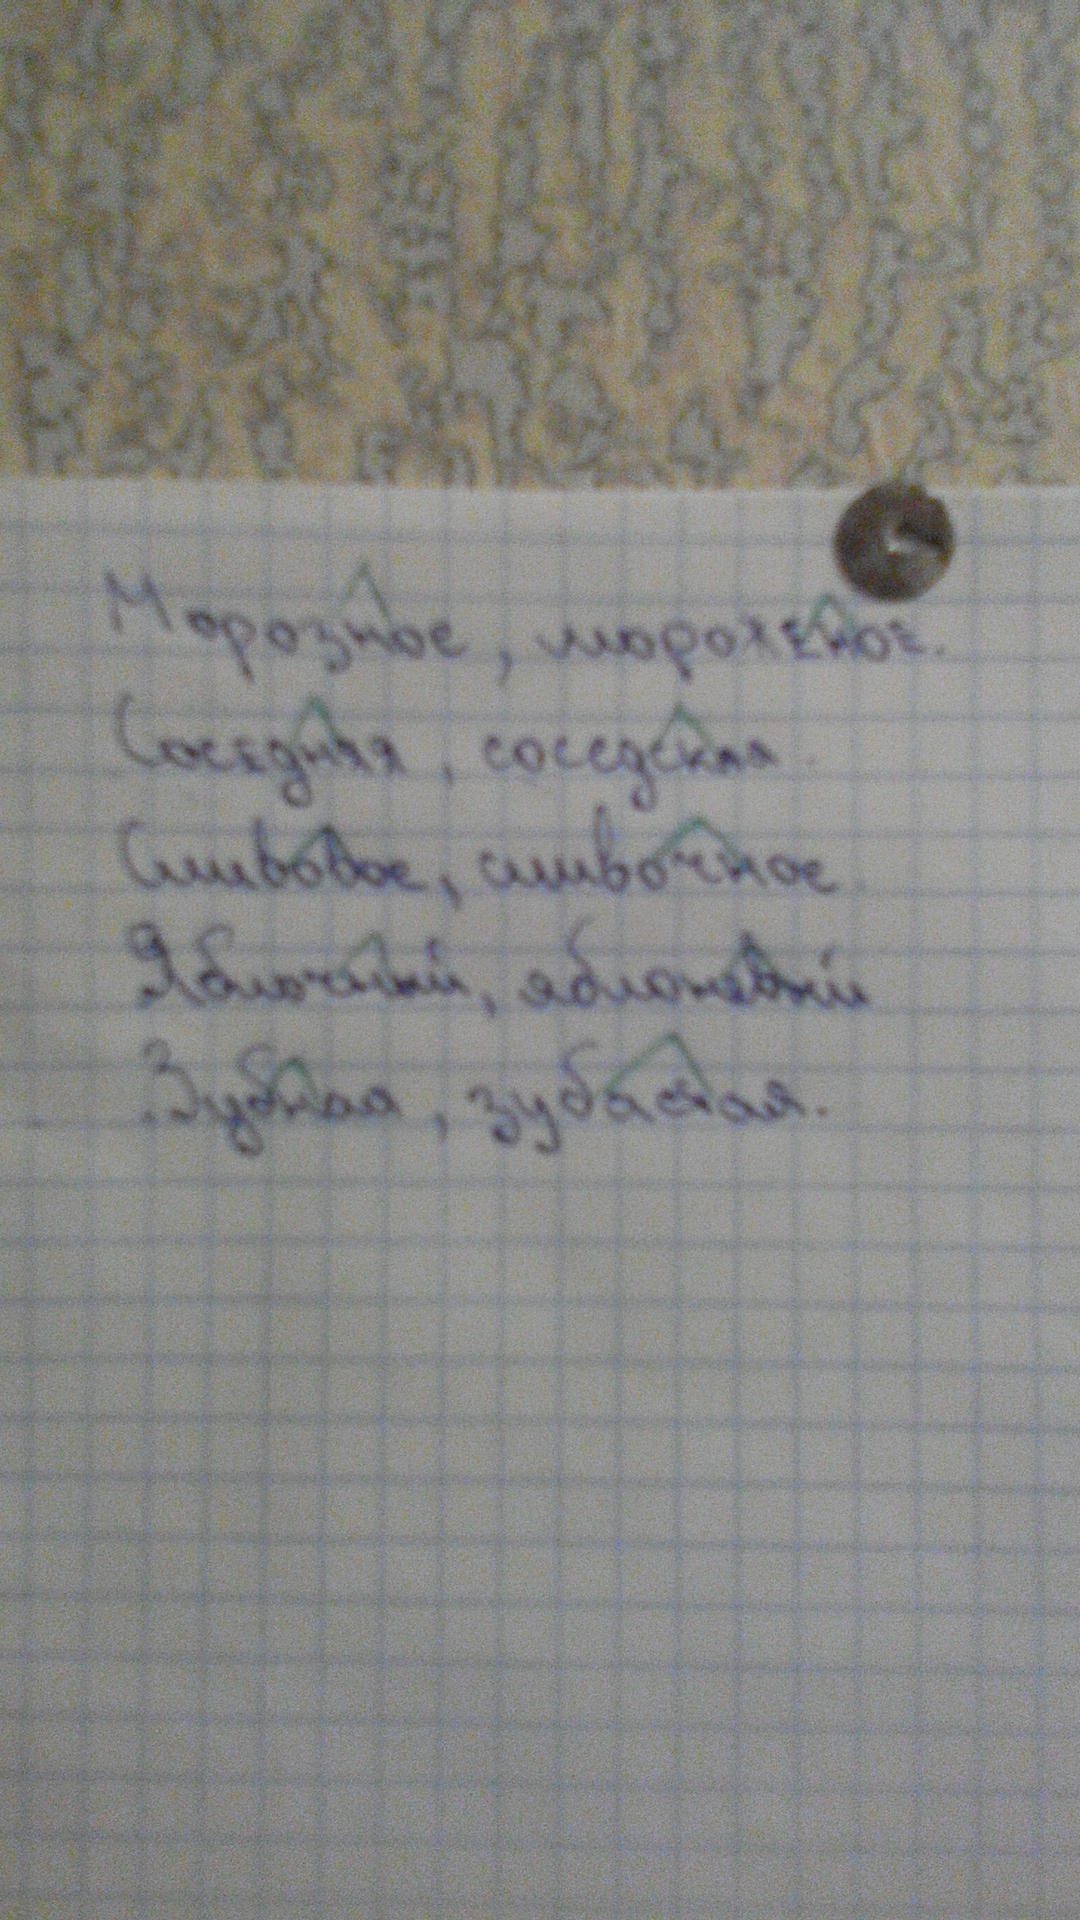 Морозное, мороженое.
Соседняя, соседская.
Сливовое, сливочное.
Яблочный, яблоневый
Зубная, зубастая.